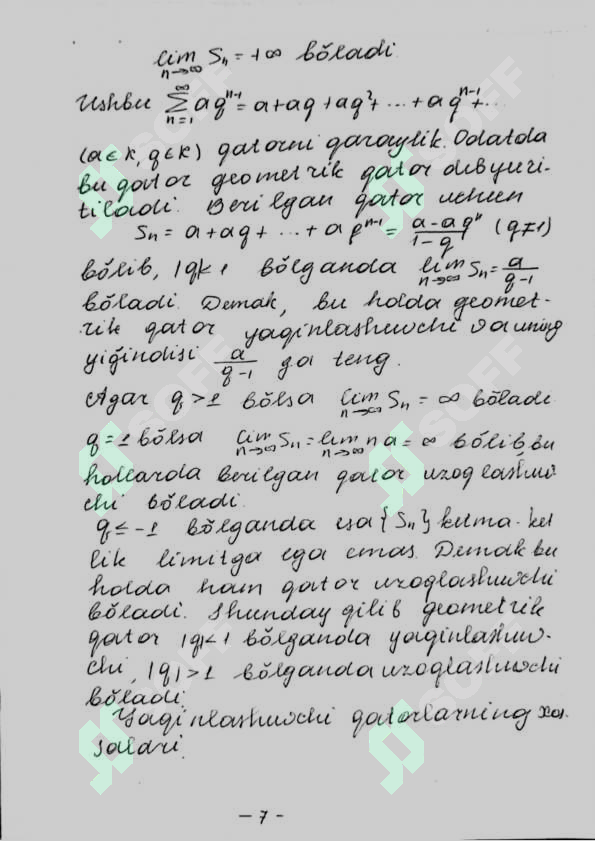 lim Sn = +∞ bŏladi.
n→∞
Ushbu ∞∑n=1 aq^(n-1) = a + aq + aq² + ... + aq^(n-1) + ...
(a∈k, q∈k) qatorni qaraylik. Odatda
bu qator geometrik qator deb yuri-
tiladi. Berilgan qator uchun
Sn = a + aq + ... + aq^(n-1) = (a - aq^n)/(1 - q) (q≠1)
bŏlib, |q|<1 bŏlganda lim n→∞ Sn = a/(q-1)
bŏladi. Demak, bu holda geomet-
rik qator yaqinlashuvchi va uning
yiğindisi a/(q-1) ga teng.
Agar q>1 bŏlsa lim n→∞ Sn = ∞ bŏladi
q=1 bŏlsa lim n→∞ Sn = lim n→∞ na = ∞ bŏlib bu
hollarda berilgan qator uzoqlashuv-
chi bŏladi.
q≤-1 bŏlganda esa {Sn} ketma-ket
lik limitga ega emas. Demak bu
holda ham qator uzoqlashuvchi
bŏladi. Shunday qilib geometrik
qator |q|<1 bŏlganda yaqinlashuv-
chi, |q|>1 bŏlganda uzoqlashuvchi
bŏladi.
Yaqinlashuvchi qatorlarning xos.
salari.
- 7 -
SOFF
SOFF
SOFF
SOFF
SOFF
SOFF